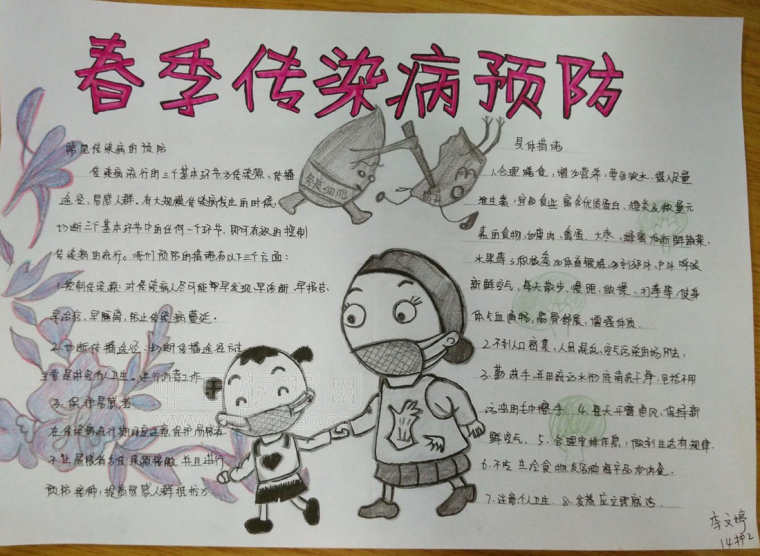 春季传染病预防
常见传染病的预防
传染病流行的三个基本环节为传染源、传播
途径、易感人群。有大规模传染病发生的时候,
切断三个基本环节中的任何一个环节,即可有效的控制
传染病的流行。我们预防的措施有以下三个方面:
1.控制传染源:对传染病人尽可能都早发现、早诊断、早报告、
早治疗、早隔离,防止传染病蔓延。
2.切断传播途径:切断传播途径方法
主要是讲究个人卫生
3.保护易感者
在传染病流行期间应注意保护易感者
预防接种,提高易感人群抵抗力
免疫细胞
具体措施
1.合理膳食,增加营养,要多饮水,摄入足量
维生素,宜多食些富含优质蛋白、糖类及微量元
素的食物,如瘦肉、禽蛋、大枣、蜂蜜和新鲜蔬菜、
水果等;积极参加体育锻炼,多到郊外、户外呼吸
新鲜空气,每天散步、慢跑、做操、习拳等,使身
体气血畅通,筋骨舒展,增强体质。
2.不到人口密集、人员混乱、空气污染的场所去,
3.勤洗手,并用流动水彻底清洗干净,包括不用
污浊的毛巾擦手。4.每天开窗通风,保持新
鲜空气。5.合理安排作息,做到生活有规律。
7.注意个人卫生。8.发热应立即就诊
李文婷